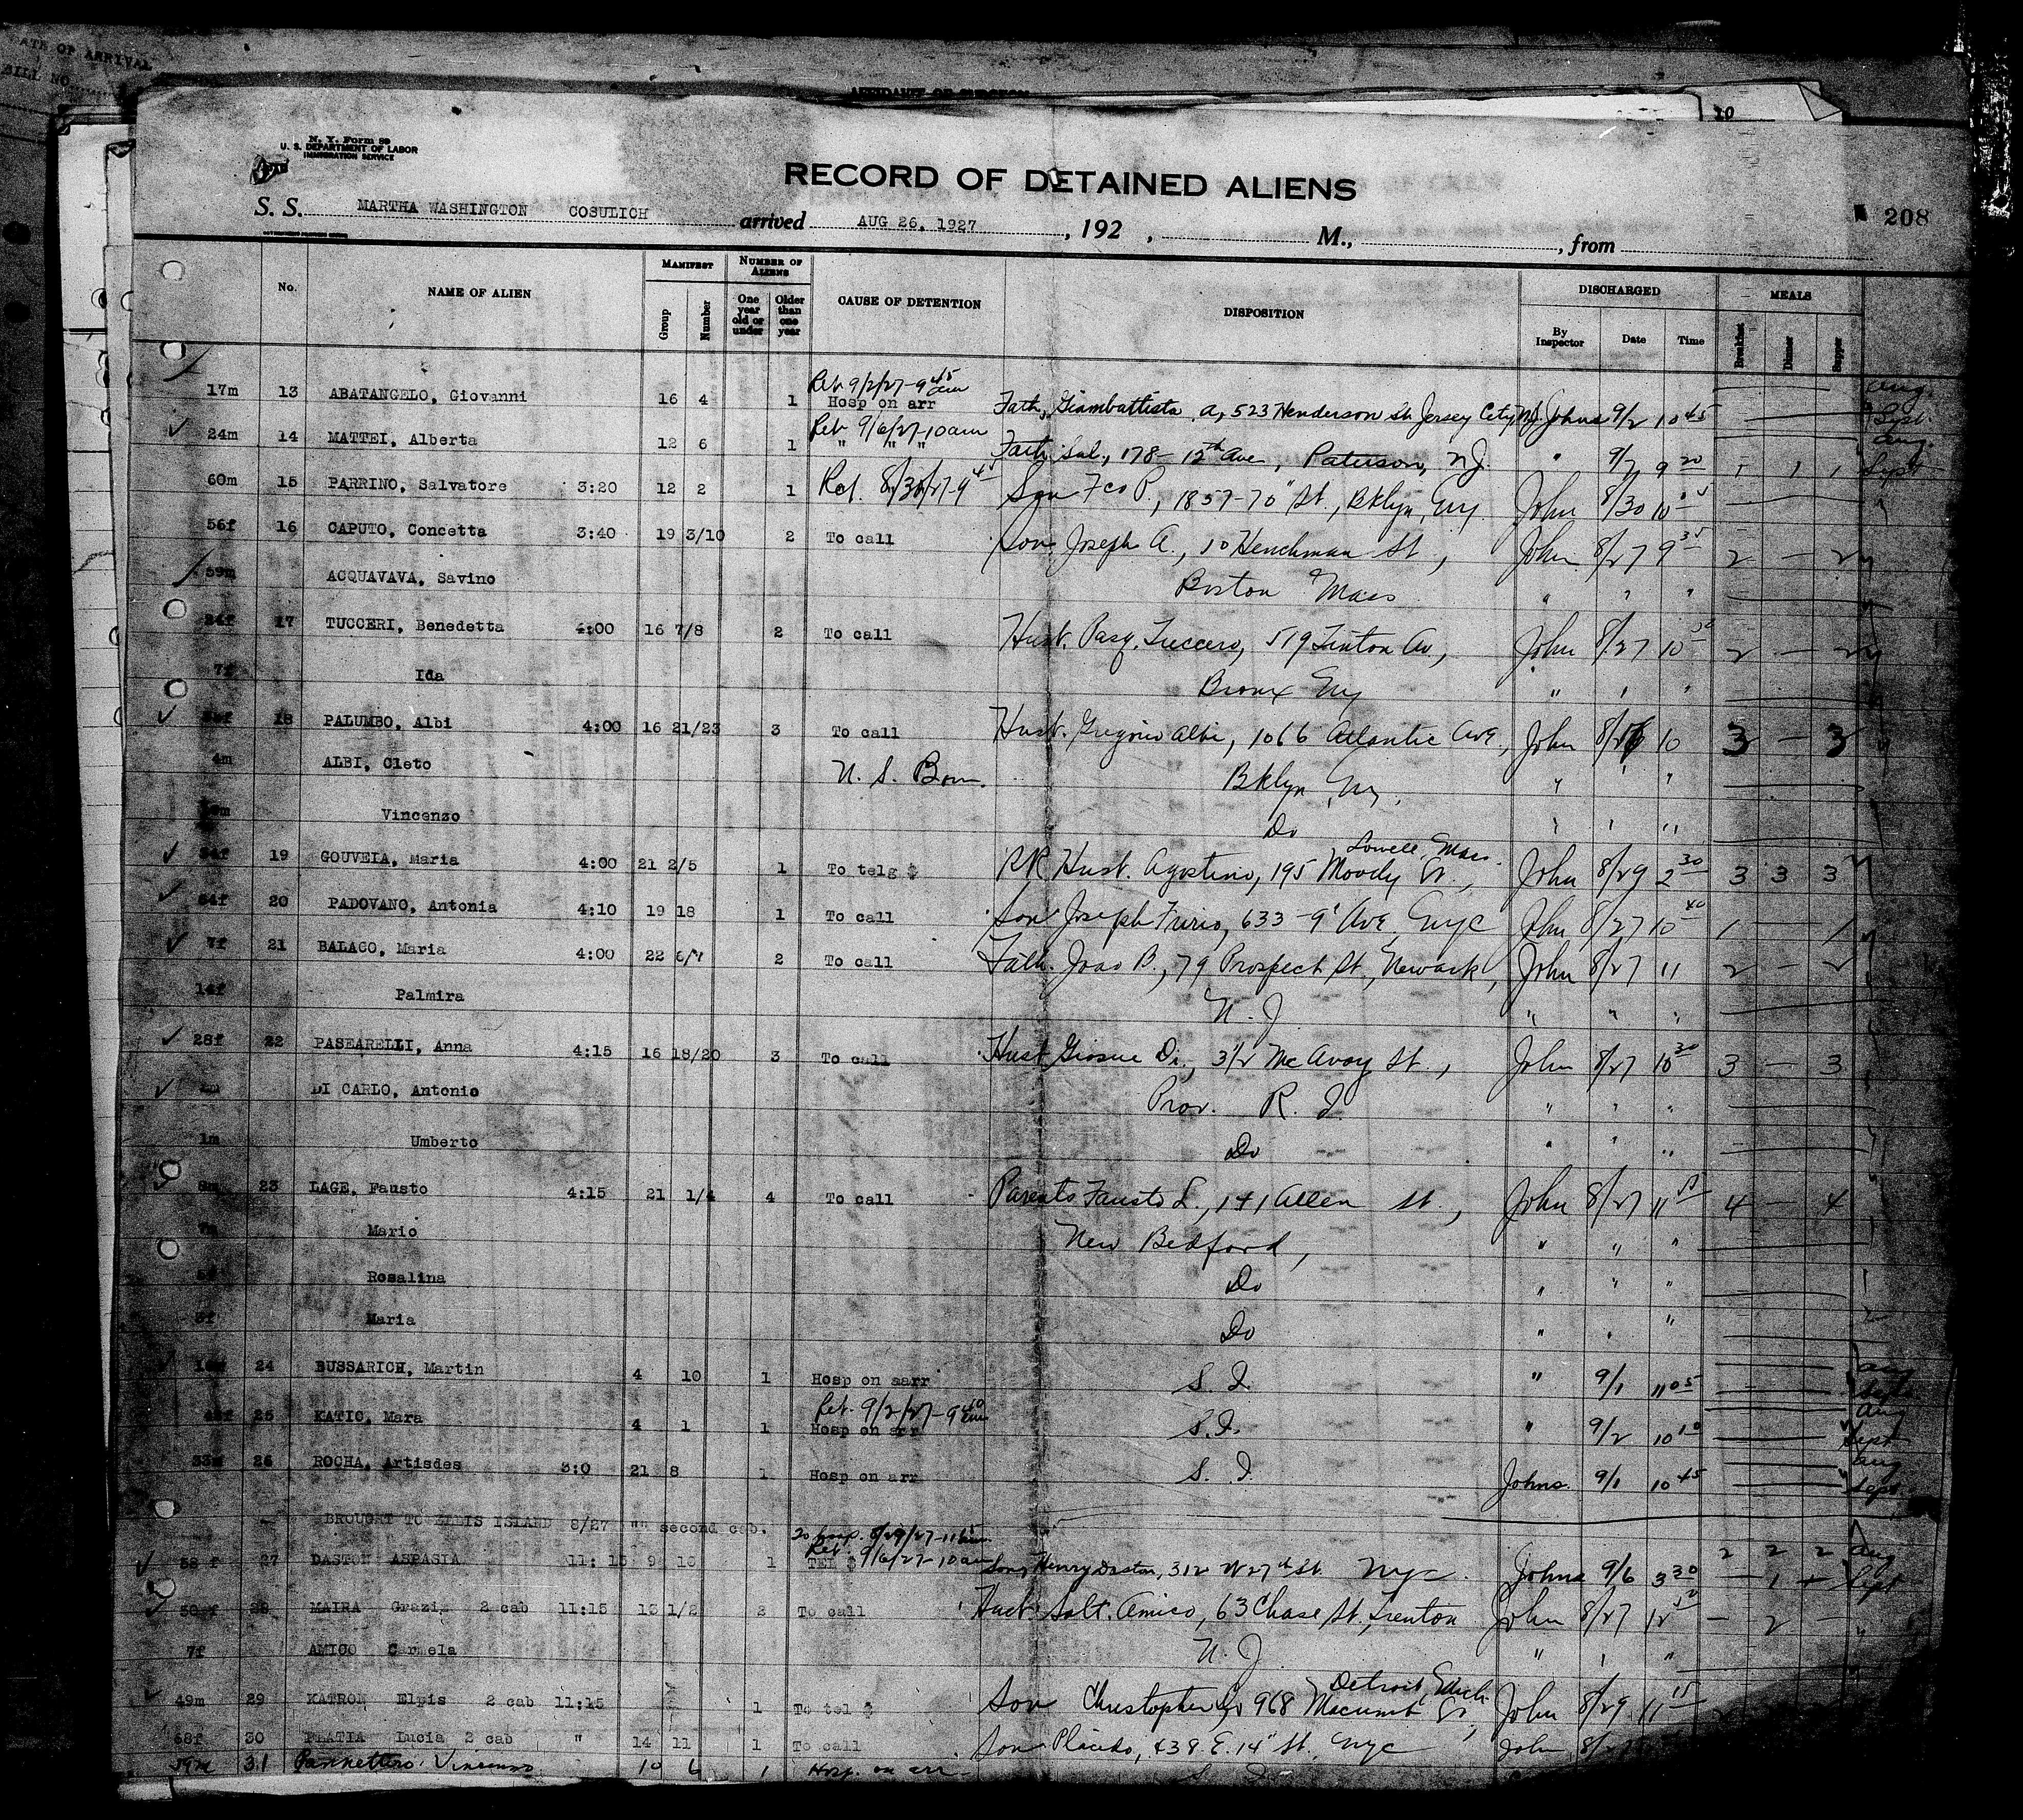 DATE OF ARRIVAL
BILL NO.
AFFIDAVIT OF SURGEON
10
N. Y. Form 89
U. S. DEPARTMENT OF LABOR
IMMIGRATION SERVICE
RECORD OF DETAINED ALIENS
S. S. MARTHA WASHINGTON COSULICH arrived AUG 26, 1927, 192 , M., , from
208
No. NAME OF ALIEN MANIFEST Group Number NUMBER OF ALIENS One year old or under Older than one year CAUSE OF DETENTION DISPOSITION DISCHARGED By Inspector Date Time MEALS Breakfast Dinner Supper
Ret 9/2/27-9 45 am Aug.
17m 13 ABATANGELO, Giovanni 16 4 1 Hosp on arr Fath, Giambattista A, 523 Henderson St Jersey City NJ Johns 9/2 10 45 Sept.
Ret 9/6/27-10am Aug.
24m 14 MATTEI, Alberta 12 6 1 " " " Fath Sal., 178-12th Ave, Paterson, N.J. " 9/7 9 20 1 1 1 Sept
60m 15 PARRINO, Salvatore 3:20 12 2 1 Ret. 8/30/27-9 45 Son Fco P., 1857-70" St., Bklyn, Ny. John 8/30 10 "
56f 16 CAPUTO, Concetta 3:40 19 3/10 2 To call Son Joseph A., 10 Henchman St., John 8/27 9 35 2 - 2 "
59m ACQUAVAVA, Savino Boston Mass " " "
24f 17 TUCCERI, Benedetta 4:00 16 7/8 2 To call Husb. Pasq. Tuccero, 519 Tinton Av., John 8/27 10 30 2 - 2 "
7f Ida Bronx Ny " " "
18 PALUMBO, Albi 4:00 16 21/23 3 To call Husb. Gregorio Albi, 1066 Atlantic Ave., John 8/27 10 3 - 3 "
4m ALBI, Cleto U. S. Born. Bklyn Ny. " " "
Vincenzo Do " " "
Lowell, Mass.
34f 19 GOUVEIA, Maria 4:00 21 2/5 1 To telg $ RR Husb. Agostino, 195 Moody St., John 8/29 2 30 3 3 3
64f 20 PADOVANO, Antonia 4:10 19 18 1 To call Son Joseph Firrio, 633-9' Ave, Nyc John 8/27 10 40 1 - 1 "
7f 21 BALACO, Maria 4:00 22 6/7 2 To call Fath. Joao B., 79 Prospect St, Newark, John 8/27 11 2 - 2
14f Palmira N. J. " " "
28f 22 PASEARELLI, Anna 4:15 16 18/20 3 To call Husb Giosue Di, 31/2 McAvoy St., John 8/27 10 30 3 - 3
DI CARLO, Antonio Prov. R. I " " "
1m Umberto Do " " "
8m 23 LAGE, Fausto 4:15 21 1/4 4 To call Parents Fausto L., 141 Allen St., John 8/27 11 4 4 "
7m Mario New Bedford, " " "
5f Rosalina Do " " "
3f Maria Do " " "
24 BUSSARICH, Martin 4 10 1 Hosp on aarr S. I. " 9/1 11 05 Aug Sept
Ret. 9/2/27-9 40 am Aug
25 KATIC, Mara 4 1 1 Hosp on arr S. I. " 9/2 10 10 Sept
Aug
33m 26 ROCHA, Artisdes 3:0 21 8 1 Hosp on arr S. I. Johns 9/1 10 45 Sept
BROUGHT TO ELLIS ISLAND 8/27 "" second cab.
To hosp. 8/29/27-11 am
Ret. 9/6/27-10am 2 2 2 Aug
58 f 27 DASTON ASPASIA 11:15 9 10 1 TEL $ Son, Henry Daston, 312 W 27th St. Nyc. Johns 9/6 3 30 - 1 - Sept
50 f 28 MAIRA Grazia 2 cab 11:15 13 1/2 2 To call Husb Salt. Amico, 63 Chase St, Trenton John 8/27 12 - 2 - "
7f AMICO Carmela N. J. " " "
Detroit, Mich.
49m 29 KATRON Elpis 2 cab 11:15 1 To tel $ Son Christopher 968 Macumb St, John 8/29 11 15
68f 30 PLATIA Lucia 2 cab " 14 11 1 To call Son Placido, 438 E. 14" St. Nyc John
59m 31 Pannettiro, Vincenzo 10 6 1 Hosp. on arr S. I.